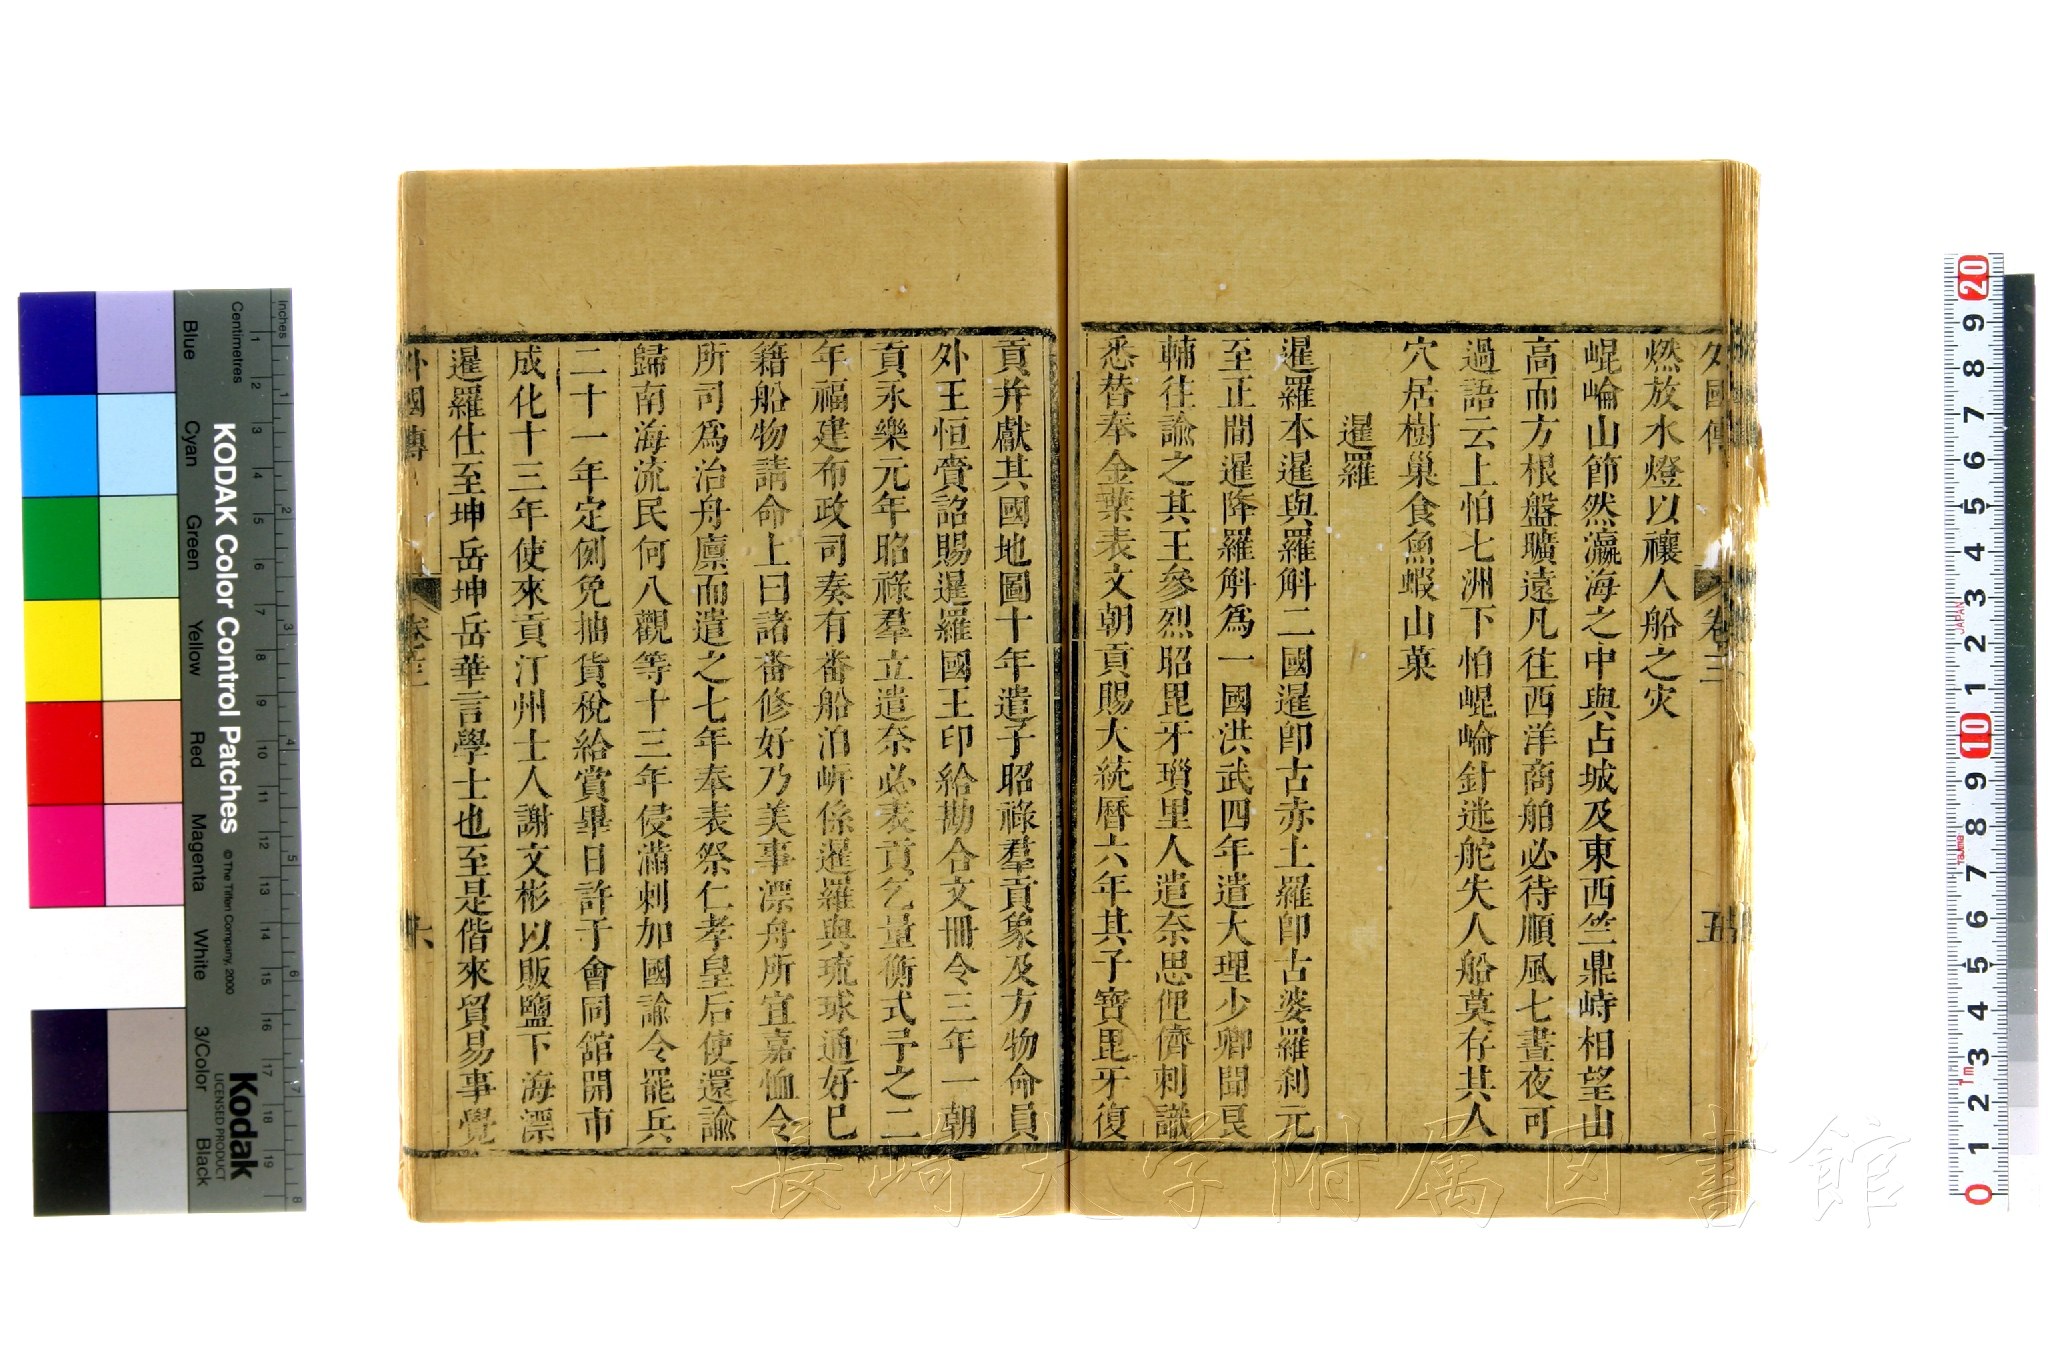 外國傳 卷三 五
燃放水燈以禳人船之灾
崐崘山節然瀛海之中與占城及東西竺鼎峙相望山
高而方根盤曠遠凡往西洋商舶必待順風七晝夜可
過語云上怕七洲下怕崐崘針迷舵失人船莫存其人
穴居樹巢食魚蝦山菓
暹羅
暹羅本暹與羅斛二國暹卽古赤土羅卽古婆羅刹元
至正間暹降羅斛爲一國洪武四年遣大理少卿聞良
輔往諭之其王參烈昭毘牙瑣里人遣奈思俚儕刺識
悉替奉金葉表文朝貢賜大統曆六年其子寶毘牙復
貢并獻其國地圖十年遣子昭祿羣貢象及方物命員
外王恒賫詔賜暹羅國王印給勘合文冊令三年一朝
貢永樂元年昭祿羣立遣奈必表貢乞量衡式予之二
年福建布政司奏有番船泊岍係暹羅與琉球通好已
籍船物請命上曰諸番修好乃美事漂舟所宜嘉恤令
所司爲治舟廩而遣之七年奉表祭仁孝皇后使還諭
歸南海流民何八觀等十三年侵滿刺加國諭令罷兵
二十一年定例免抽貨稅給賞畢日許于會同舘開市
成化十三年使來貢汀州士人謝文彬以販鹽下海漂
暹羅仕至坤岳坤岳華言學士也至是偕來貿易事覺
外國傳 卷三 六
長崎大学附属図書館
KODAK Color Control Patches
© The Tiffen Company, 2000
Kodak
LICENSED PRODUCT
Inches
Centimetres
Blue
Cyan
Green
Yellow
Red
Magenta
White
3/Color
Black
JAPAN
Tajima
1m